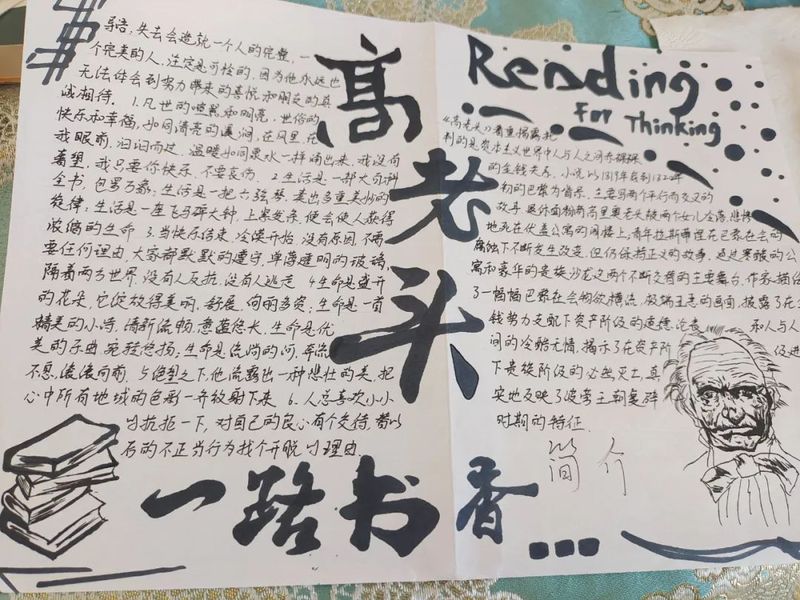 导语：失去会造就一个人的完整，一
个完美的人，注定是可怜的，因为他永远也
无法体会到努力带来的喜悦和朋友的真
诚相待． 1.凡世的喧嚣和明亮，世俗的
快乐和幸福，如同清亮的溪涧，在风里，在
我眼前，汩汩而过，温暖如同泉水一样涌出来，我没有
奢望，我只要你快乐，不要哀伤． 2.生活是一部大百科
全书，包罗万象；生活是一把六弦琴，奏出多重美妙的
旋律；生活是一座飞马牌大钟，上紧发条，便会使人获得
浓缩的生命． 3.当快乐结束，冷漠开始，没有原因，不需
要任何理由，大家都默默的遵守，单薄透明的玻璃，
隔着两个世界，没有人反抗，没有人逃走． 4.生命是盛开
的花朵，它绽放得美丽，舒展，绚丽多资；生命是一首
精美的小诗，清新流畅，意蕴悠长，生命是优
美的乐曲，宛转悠扬；生命是流淌的河，奔流
不息，滚滚向前． 与绝望之下，他流露出一种悲壮的美，把
心中所有地域的色彩一齐放射下来． 6.人总喜欢小小
的抗拒一下，对自己的良心有个交待，替以
后的不正当行为找个开脱的理由．
高老头
Reading
For Thinking
《高老头》着重揭露批
判的是资本主义世界中人与人之间赤裸裸
的金钱关系．小说以1819年底到1820年
初的巴黎为背景，主要写两个平行而交叉的
故事：退休面粉商高里奥老头被两个女儿冷落，悲惨
地死在伏盖公寓的阁楼上；青年拉斯蒂涅在巴黎社会的
腐蚀下不断发生改变，但仍保持正义的故事，通过寒酸的公
寓和豪华的贵族沙龙这两个不断交替的主要舞台，作家描绘
了一幅幅巴黎社会物欲横流，极端丑恶的画面，披露了在金
钱势力支配下资产阶级的道德沦丧 和人与人
间的冷酷无情，揭示了在资产阶 级进
下贵族阶级的必然灭亡，真
实地反映了波旁王朝复辟
时期的特征．
简介
一路书香...